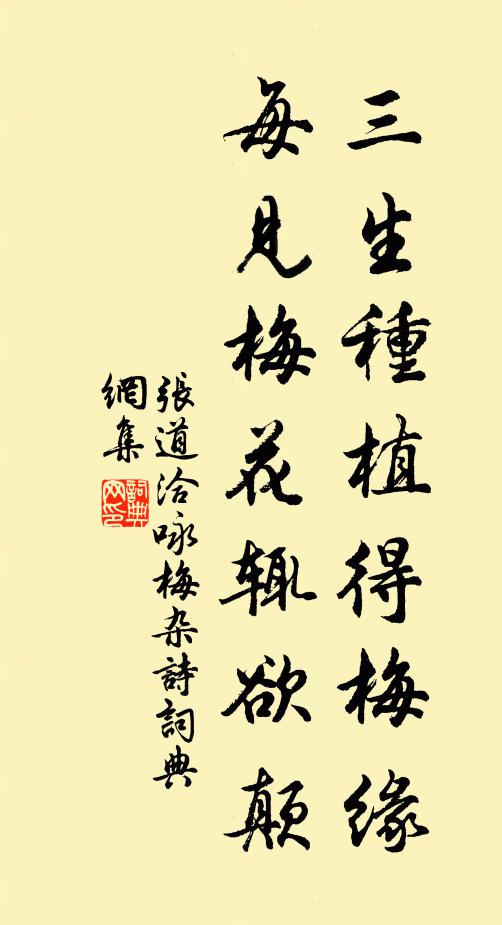 三生種植得梅緣
每見梅花辄欲颠
張道洽咏梅杂詩詞典
網集
詞典
网印